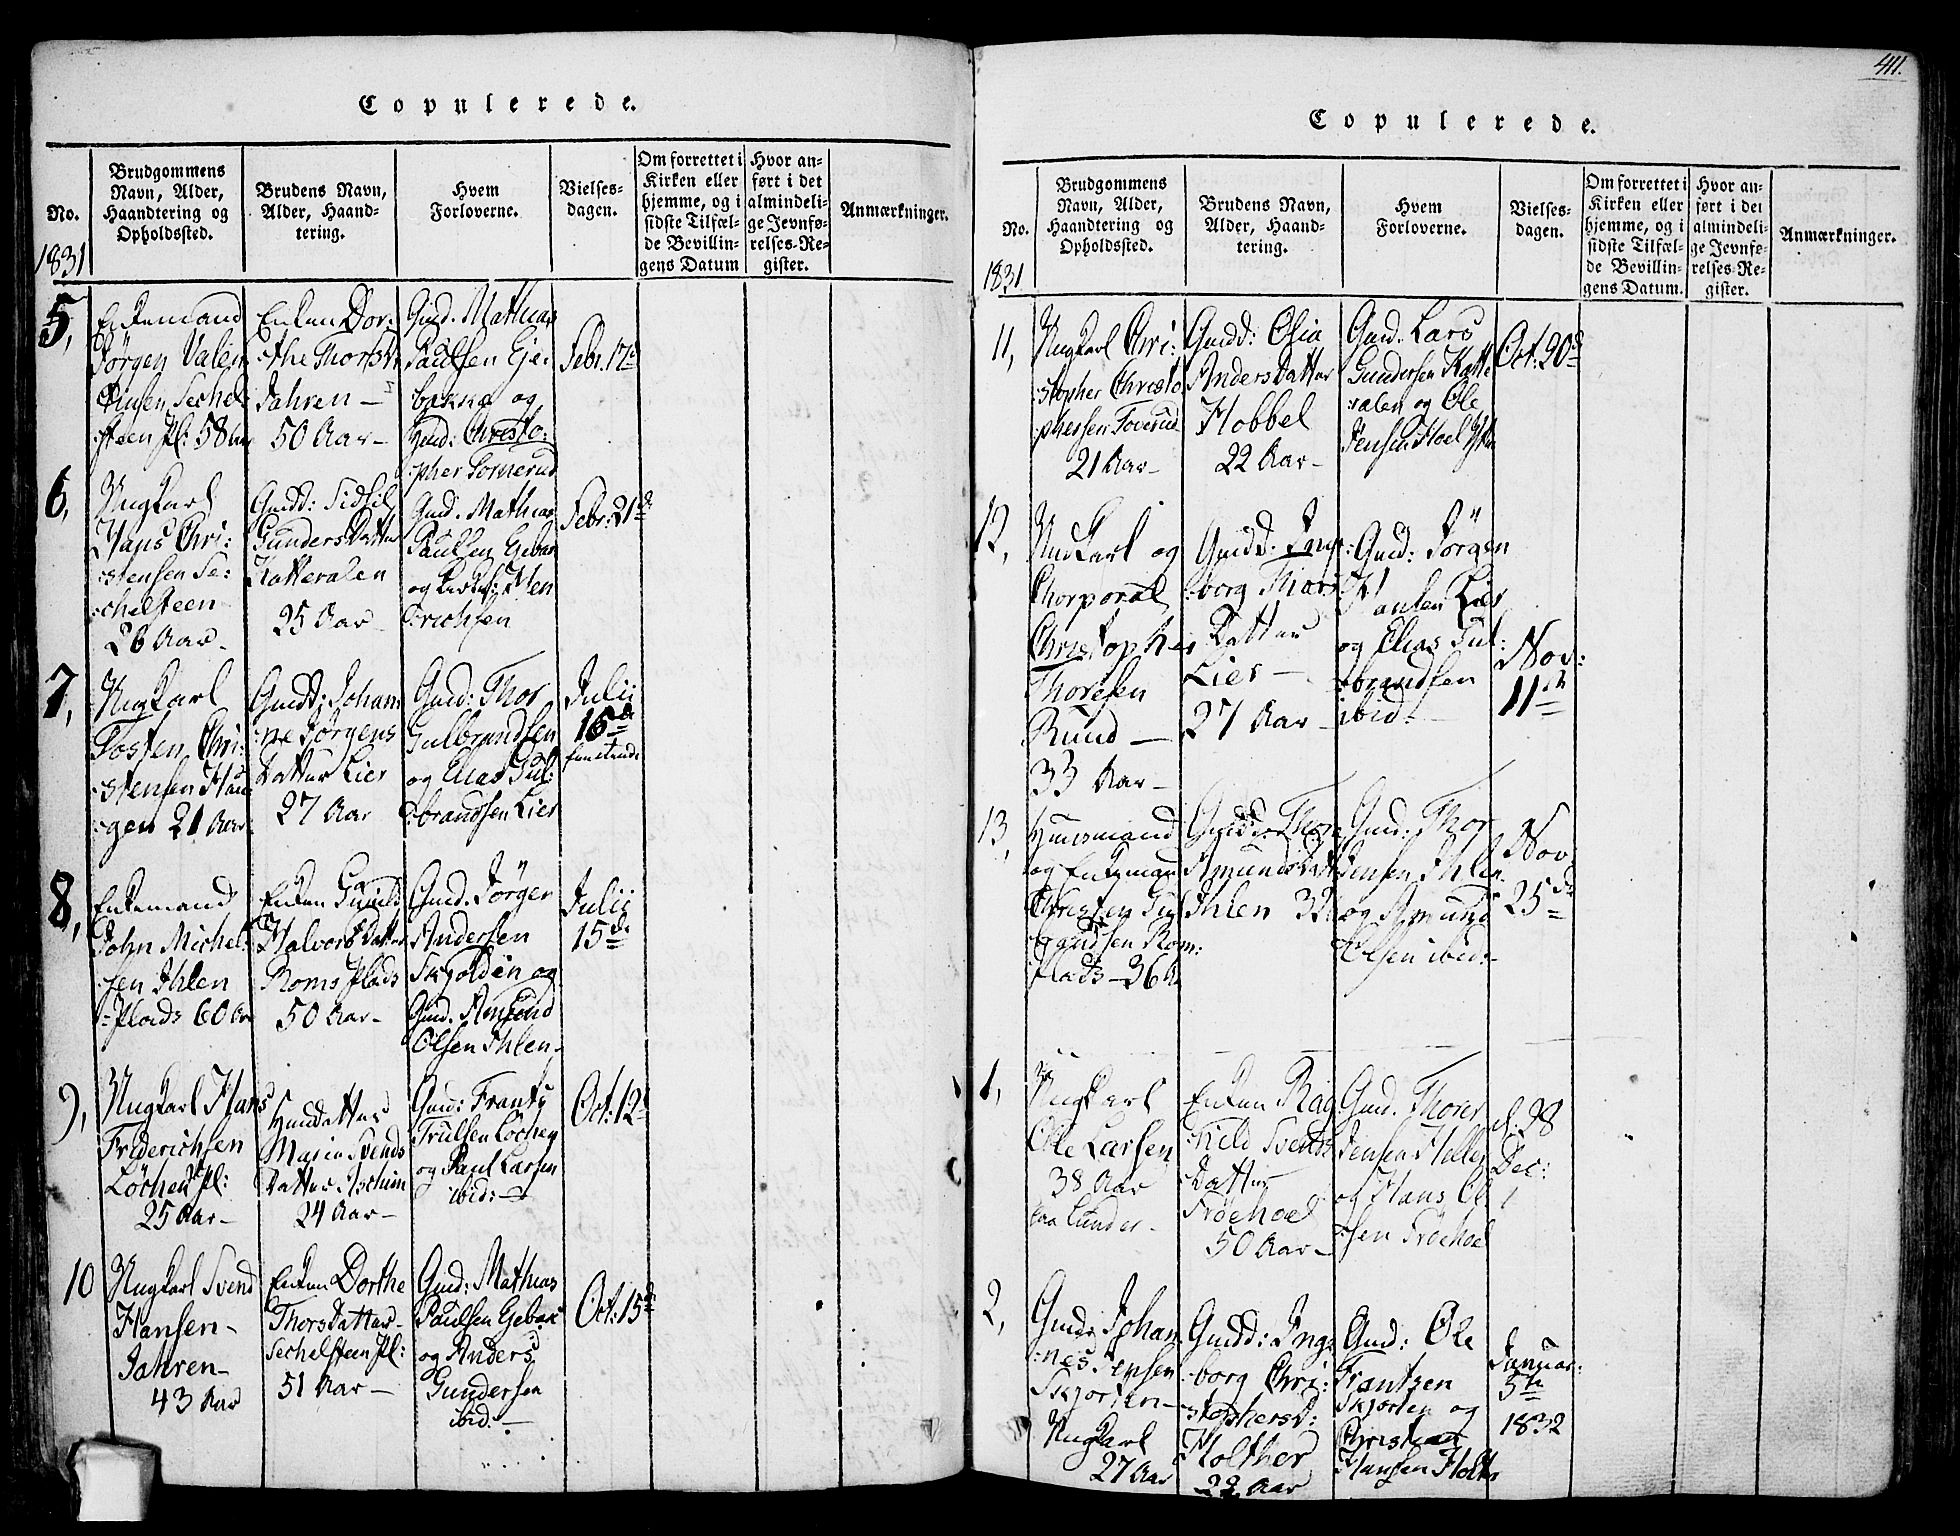 Copulerede.
No.
1831
Brudgommens
Navn, Alder,
Haandtering og
Opholdssted.
Brudens Navn,
Alder, Haand-
tering.
Hvem
Forloverne.
Vielses-
dagen.
Om forrettet i
Kirken eller
hjemme, og i
sidste Tilfæl-
de Bevillin-
gens Datum
Hvor an-
ført i det
almindeli-
ge Jevnfø-
relses-Re-
gister.
Anmærkninger.
5,
Enkemand
Jörgen Valen
Sechel
steen Pl: 58 Aar
Enken Dor
the Thorsd
Jahren –
50 Aar –
Gud. Mathias
Paulsen Gje
bakke og
Gud: Christo:
pher Tomerud
Febr. 17d
6,
Ungkarl
Hans Chri:
stensen Se:
chelsteen
26 Aar –
Gudd: Sidsil
Gunders Datter
Katteralen
25 Aar
Gud. Mathias
Paulsen Gebak
og
Erichsen
Febr: 21de
7,
Ungkarl
Tosten Chri:
stensen Hau
gen 21 Aar
Gudd: Johan
ne Jörgens
Datter Lier
27 Aar
Gud: Thor
Gulbrandsen
og Elias Gul:
brandsen Lier
Julii
15de
8,
Enkemand
John Michel
sen Ihlen
Plads 60 Aar
Enken Gunild
Halvors Datter
Roms Plads
50 Aar –
Gud. Jörgen
Andersen
Skjolden og
Gud. Amund
Olsen Ihlen
Julii
15de
9,
Ungkarl Hans
Friderichsen
Löchen Pl:
25 Aar –
Huusdatter
Marie Svends
Datter Aschim
24 Aar –
Gud: Frants
Trulsen Löchen
og Paul Larsen
ibid: –
Oct: 12d
10
Ungkarl Svend
Hansen –
Jahren –
43 Aar
Enken Dorthe
Thors Datter
Sechelsteen Pl:
51 Aar –
Gud: Mathias
Paulsen Gebak
og Anders
Gundersen
ibid: –
Oct: 15de
411.
Copulerede.
No.
1831
Brudgommens
Navn, Alder,
Haandtering og
Opholdssted.
Brudens Navn,
Alder, Haand-
tering.
Hvem
Forloverne.
Vielses-
dagen.
Om forrettet i
Kirken eller
hjemme, og i
sidste Tilfæl-
de Bevillin-
gens Datum.
Hvor an-
ført i det
almindeli-
ge Jevnfø-
relses-Re-
gister.
Anmærkninger.
11,
Ungkarl Chri:
stopher Christo
phersen Toverud
21 Aar –
Gudd: Osia
Anders Datter
Hobbel
22 Aar –
Gud. Lars
Gundersen Katte
ralen og Ole
Jensen Hoel
Oct: 20de
12,
Ungkarl og
Chorporal
Christopher
Thoresen
Rund –
33 Aar –
Gudd: Inge:
borg Thors
Datter
Lier –
27 Aar –
Gud: Jörgen
Hansen Lier
og Elias Gul:
brandsen
ibid: –
Nov:
11te
13,
Huusmand
og Enkemand
Christen Gul
brandsen Rom:
Plads – 36 A
Gudd:
Amunds Dat
Ihlen 32
Gud: Thor
Jensen Ihlen
og Amund
Olsen ibid: –
Nov
25de
1,
Ungkarl
Ole Larsen
38 Aar
Lunder –
Enken Rag
Svends
Datter
Tröehoel
50 Aar –
Gud. Thorer
Jensen
og Hans Ol
sen Tröehoel
d: 28
Dec:
2,
Gud: Johan
nes Jensen
Skjorten –
Ungkarl
27 Aar
Gudd: Inge
borg Chri:
stophersd:
Holther
22 Aar
Gud: Ole
Frantzen
Skjorten og
Christian
Hansen Holte
Januar:
5te
1832